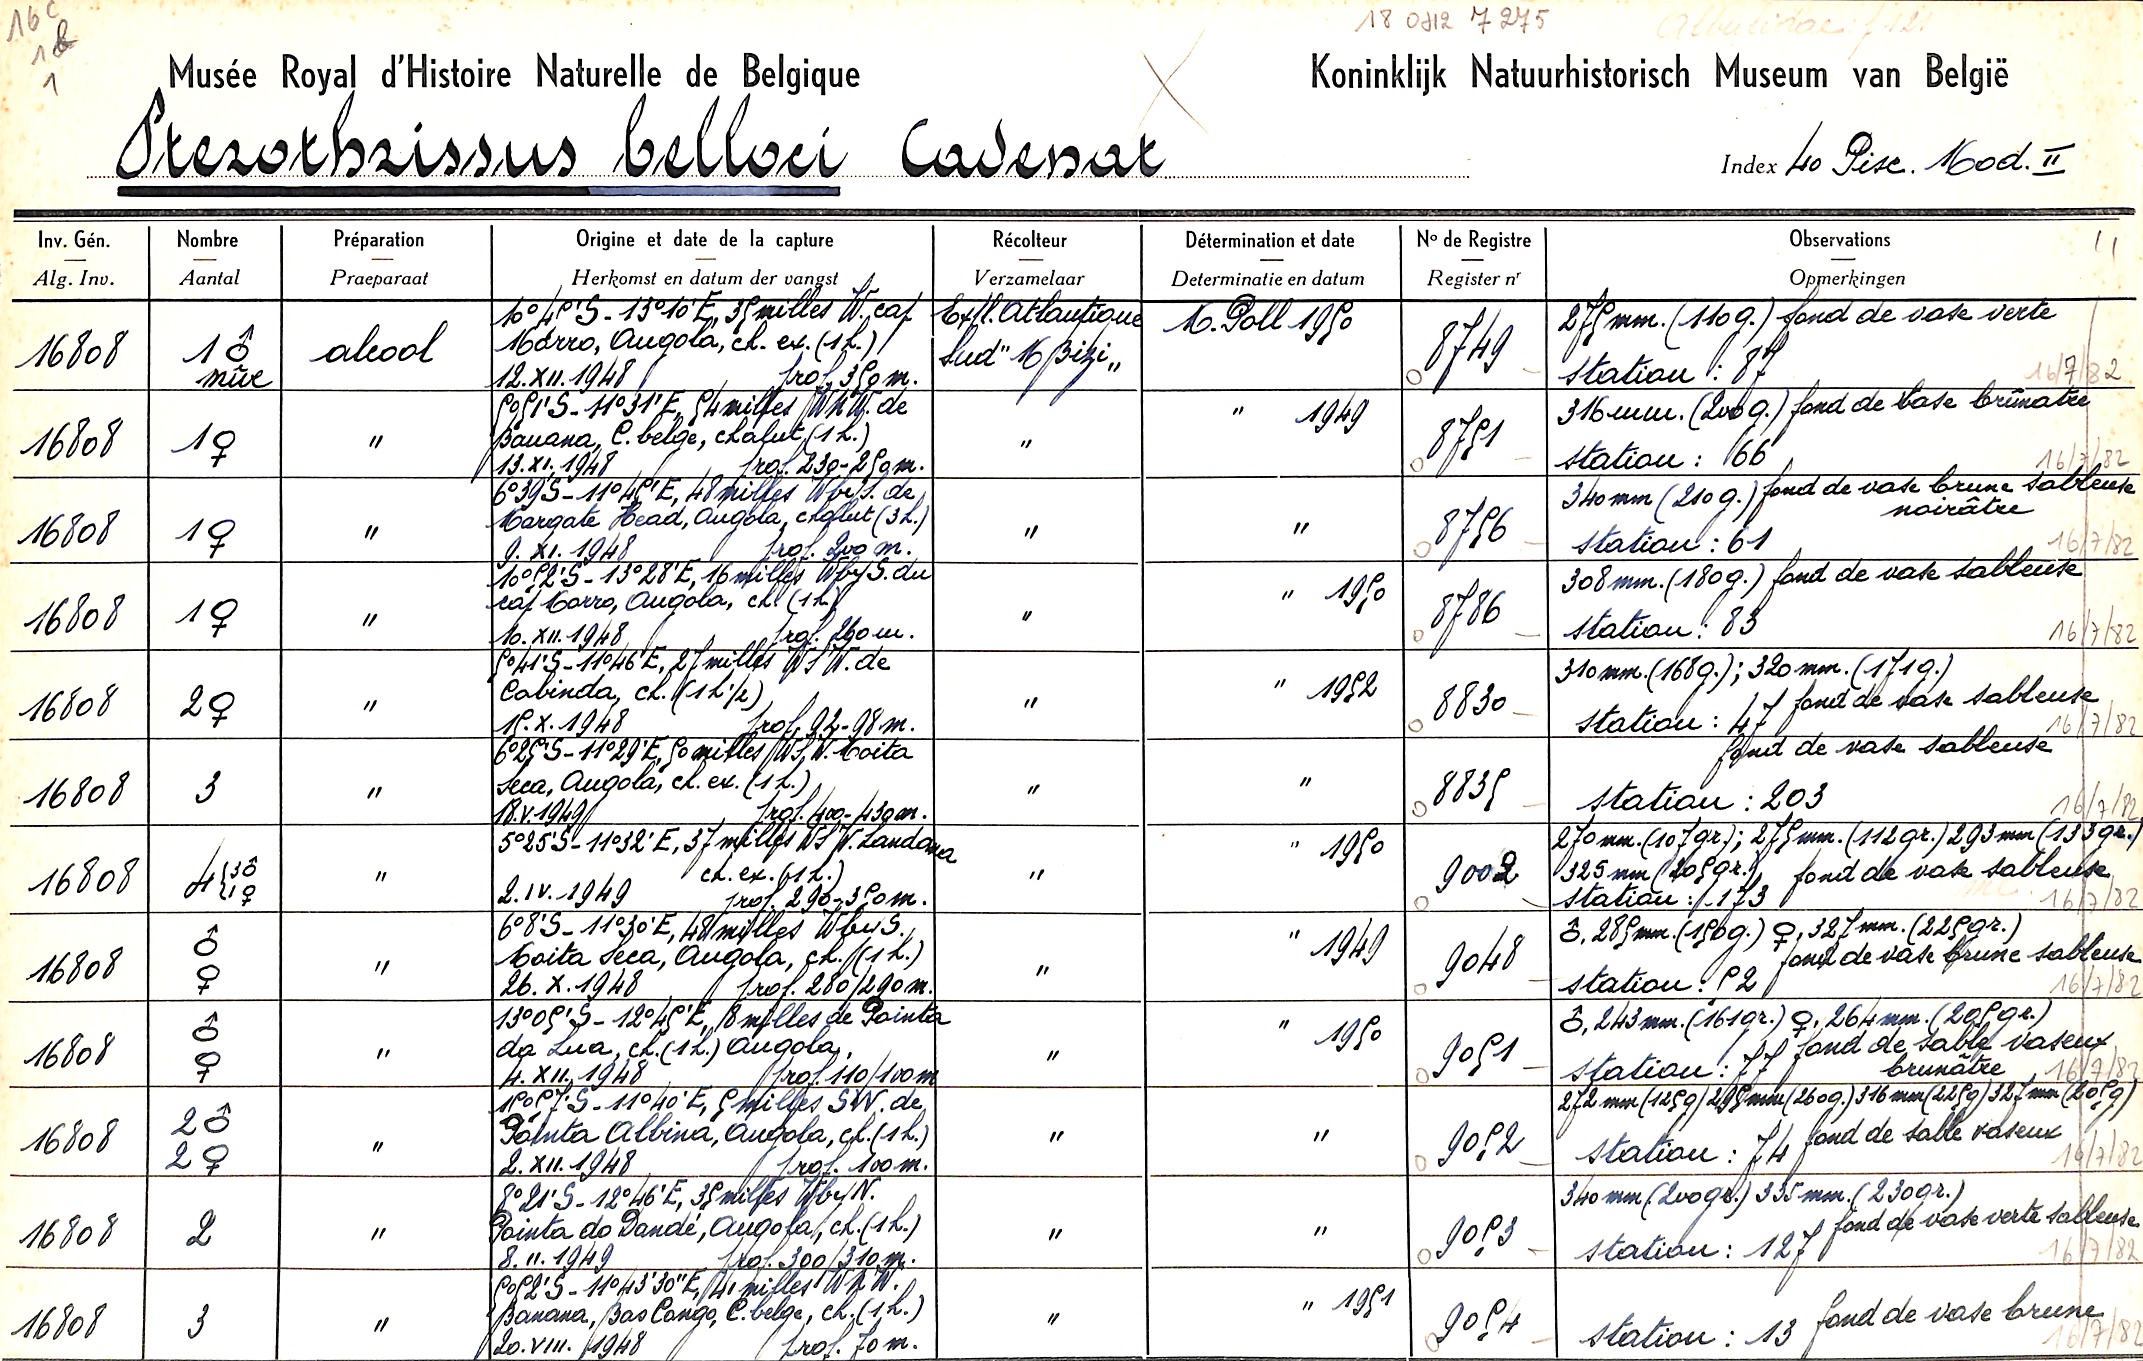 16c
1b
1
18 0812 7275
Albulidae
Musée Royal d'Histoire Naturelle de Belgique
Koninklijk Natuurhistorisch Museum van België
Pterothrissus belloci Cadenat
Index 40 Pisc. Mod. II
Inv. Gén. Nombre Préparation Origine et date de la capture Récolteur Détermination et date No de Registre Observations
Alg. Inv. Aantal Praeparaat Herkomst en datum der vangst Verzamelaar Determinatie en datum Register nr Opmerkingen
10°45'S - 13°10'E, 35 milles W. cap Exp. Atlantique M. Poll 1950 275 mm. (110 g.) fond de vase verte
16808 1 ♂ alcool Morro, Angola, ch. ex. (1 h.) Sud "M'Bizi" 8749
mûr 12.XII.1948 prof. 350 m. station : 87 16/7/82
5°51'S - 11°31'E, 54 milles WNW. de " 1949 316 mm. (200 g.) fond de vase brunâtre
16808 1 ♀ " Banana, C. belge, chalut (1 h.) " 8751
13.XI.1948 prof. 230-250 m. station : 66 16/7/82
6°39'S - 11°45'E, 48 milles W by S. de 340 mm (210 g.) fond de vase brune sableuse
16808 1 ♀ " Margate Head, Angola, chalut (3 h.) " " 8756 noirâtre
9.XI.1948 prof. 200 m. station : 61 16/7/82
10°52'S - 13°28'E, 16 milles W by S. du " 1950 308 mm. (180 g.) fond de vase sableuse
16808 1 ♀ " cap Morro, Angola, ch. (1 h.) " 8786
10.XII.1948 prof. 260 m. station : 83 16/7/82
5°41'S - 11°46'E, 27 milles WSW. de " 1952 310 mm. (168 g.); 320 mm. (171 g.)
16808 2 ♀ " Cabinda, ch. (1 h 1/2) " 8830 fond de vase sableuse
15.X.1948 prof. 92-98 m. station : 47 16/7/82
6°25'S - 11°29'E, 50 milles WSW. Moita fond de vase sableuse
16808 3 " Seca, Angola, ch. ex. (1 h.) " " 8835
18.V.1949 prof. 400-430 m. station : 203 16/7/82
5°25'S - 11°32'E, 37 milles WSW. Landana " 1950 270 mm. (107 gr.); 275 mm. (112 gr.) 293 mm (133 gr.)
16808 4 {3♂ 1♀ " ch. ex. (1 h.) " 9002 325 mm (205 gr.) fond de vase sableuse
2.IV.1949 prof. 290-350 m. station : 173 16/7/82
6°8'S - 11°30'E, 48 milles W by S. " 1949 ♂, 285 mm. (156 g.) ♀, 327 mm. (225 gr.)
16808 ♂ ♀ " Moita Seca, Angola, ch. (1 h.) " 9048 fond de vase brune sableuse
26.X.1948 prof. 280/290 m. station : 52 16/7/82
13°05'S - 12°45'E, 18 milles de Pointa " 1950 ♂, 243 mm. (161 gr.) ♀, 264 mm. (205 gr.)
16808 ♂ ♀ " da Lua, ch. (1 h.) Angola, " 9051 fond de sable vaseux
4.XII.1948 prof. 110/100 m station : 77 brunâtre 16/7/82
15°57'S - 11°40'E, 5 milles SW. de 272 mm (125 g) 295 mm (260 g.) 316 mm (225 g) 327 mm (205 g)
16808 2 ♂ 2 ♀ " Pointa Albina, Angola, ch. (1 h.) " " 9052 fond de sable vaseux
2.XII.1948 prof. 100 m. station : 74 16/7/82
8°21'S - 12°46'E, 35 milles W by N. 340 mm (200 gr.) 335 mm. (230 gr.)
16808 2 " Pointa do Dandé, Angola, ch. (1 h.) " " 9053 fond de vase verte sableuse
8.II.1949 prof. 300/310 m. station : 127 16/7/82
5°52'S - 11°43'30"E, 41 milles WNW. " 1951
16808 3 " Banana, Bas Congo, C. belge, ch. (1 h.) " 9054 fond de vase brune
20.VIII.1948 prof. 70 m. station : 13 16/7/82